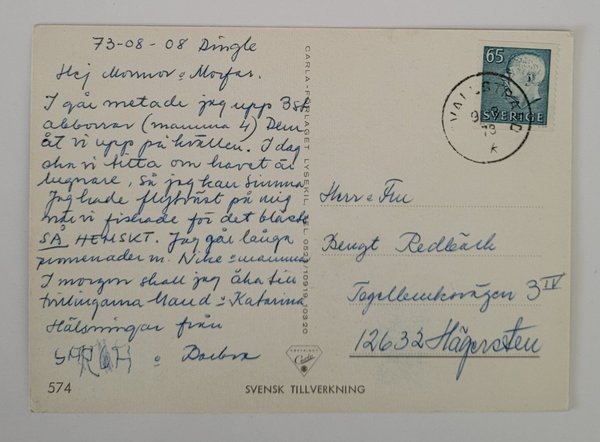 73-08-08 Dingle
Hej Mormor o Morfar.
I går metade jag upp 3st
abborrar (mamma 4) Dem
åt vi upp på kvällen. I dag
ska vi titta om havet är
lugnare, så jag kan simma
Jag hade flytväst på mig
när vi fiskade för det blåste
SÅ HEMSKT. Jag går långa
promenader m. Nike o mamma
I morgon skall jag åka till
tvillingarna Maud o Katarina
Hälsningar från
o Barbro
574
SVENSK TILLVERKNING
CARLA-FÖRLAGET, LYSEKIL, TEL. 0523/10919, 10320
COPYRIGHT
Carla
65
SVERIGE
VALLSTRAND
9 8
73
K
Herr o Fru
Bengt Redbäck
3 IV
12632 Hägersten